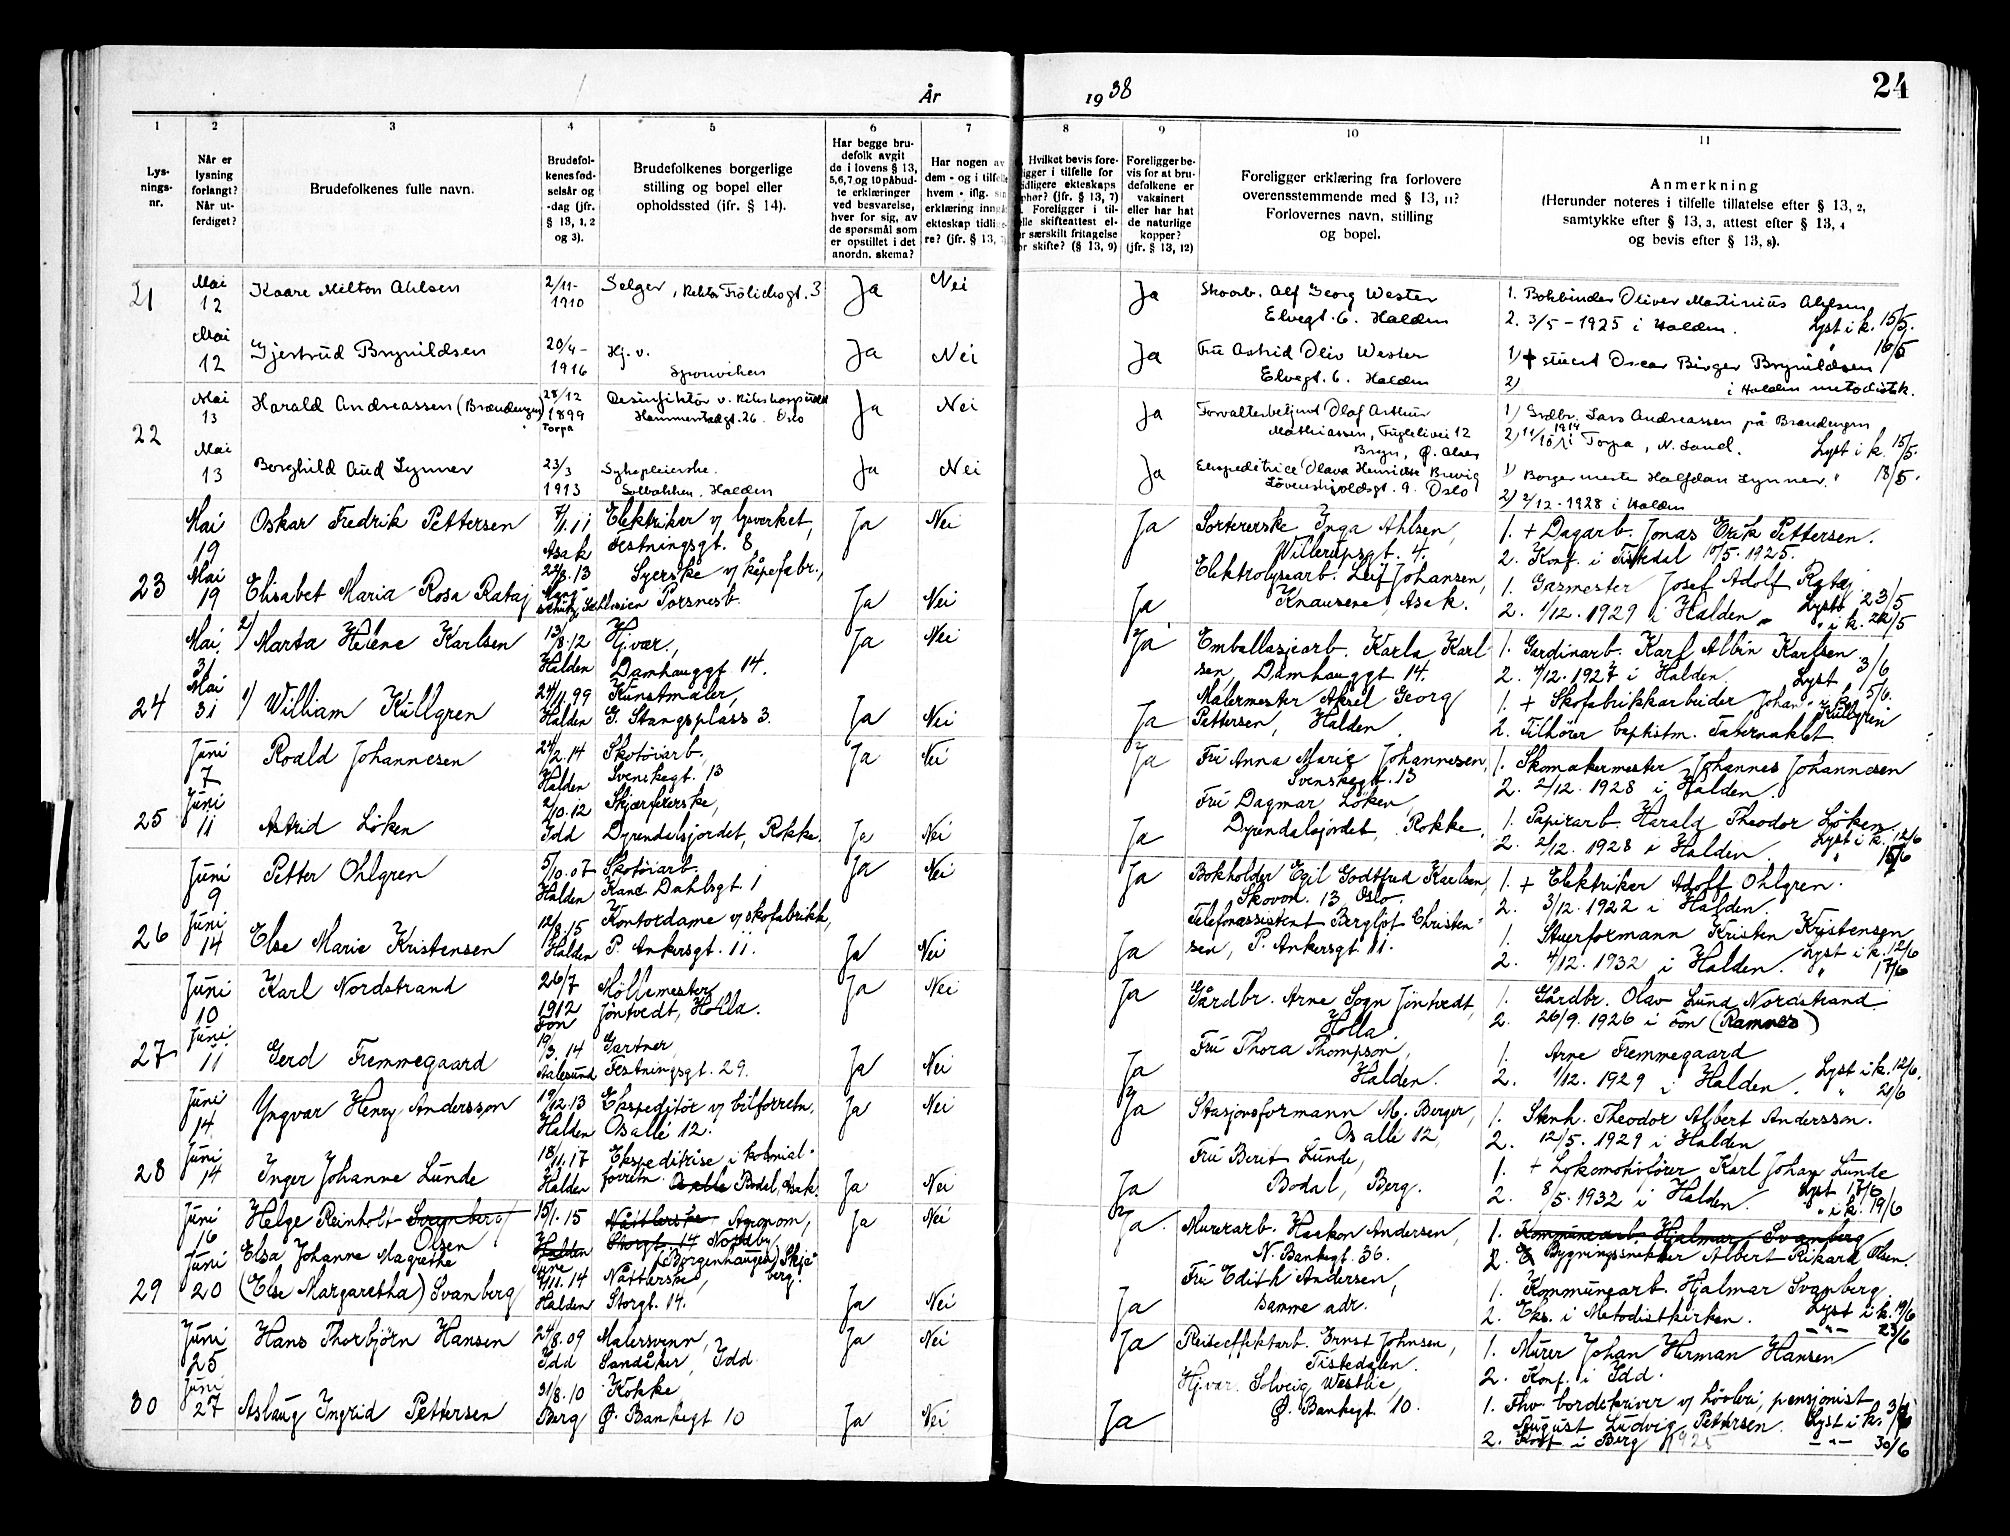 24
År 1938
1 2 3 4 5 6 7 8 9 10 11
Lys-
nings-
nr.
Når er
lysning
forlangt?
Når ut-
ferdiget?
Brudefolkenes fulle navn.
Brudefol-
kenes fød-
selsår og
-dag (jfr.
§ 13, 1, 2
og 3).
Brudefolkenes borgerlige
stilling og bopel eller
opholdssted (ifr. § 14).
Har begge bru-
defolk avgit
de i lovens § 13,
5,6,7 og 10 påbud-
te erklæringer
ved besvarelse,
hver for sig, av
de spørsmål som
er opstillet i det
anordn. skema?
Har nogen av
dem - og i tilfelle
hvem - iflg. sin
erklæring inngått
ekteskap tidlige-
re? (jfr. § 13,
Hvilket bevis fore-
ligger i tilfelle for
tidligere ekteskaps
ophør? (jfr. § 13, 7)
Foreligger i til-
felle skifteattest el-
er særskilt fritagelse
or skifte? (§ 13, 9)
Foreligger be-
vis for at bru-
defolkene er
vaksinert
eller har hat
de naturlige
kopper?
(jfr. § 13, 12)
Foreligger erklæring fra forlovere
overensstemmende med § 13, 11?
Forlovernes navn, stilling
og bopel.
Anmerkning
(Herunder noteres i tilfelle tillatelse efter § 13, 2,
samtykke efter § 13, 3, attest efter § 13, 4
og bevis efter § 13, 8).
21 Mai 12 Kaare Milton Ahlsen 2/11-1910 Selger, Rektor Frölichsgt. 3 Ja Nei Ja Skoarb. Alf Georg Wester
Elvegt. 6. Halden
1. Bokbinder Oliver Martinius Ahlsen
2. 3/5-1925 i Halden. Lyst i k. 15/5.
" 16/5
Mai 12 Gjertrud Brynildsen 20/4-1916 Hj. v.
Sponviken Ja Nei Ja Fru Astrid Oliv Wester
Elvegt. 6. Halden
1) + stuert Oscar Birger Brynildsen
2) i Halden metodistk.
22 Mai 13 Harald Andreassen (Brændengen) 28/12 1899 Torpa Desinfiktør v. Rikshospitalet
Hammerstadgt. 26. Oslo Ja Nei Ja Forvalterbetjent Olaf Arthur
Mathiassen, Fuglelivei 12
Bryn, Ø. Aker
1) Grdbr. Lars Andreassen på Brændengen
2) 11/10 1914 i Torpa, N. Land. Lyst i k. 15/5.
Mai 13 Borghild Aud Lynner 23/3 1913 Sykepleierske.
Solbakken, Halden Ja Nei Ja Ekspeditrice Olava Henriette Brevig
Løvenskjoldsgt. 9. Oslo
1) Borgermester Halfdan Lynner. " 18/5.
2) 2/12-1928 i Halden
23 Mai 19 Oskar Fredrik Pettersen 7/1.11 Asak Elektriker v/ lysverket,
Festningsgt. 8 Ja Nei Ja Sortererske Inga Ahlsen,
Willerupsgt. 4.
1. + Dagarb. Jonas Erik Pettersen.
2. Konf. i Tistedal 10/5. 1925.
Mai 19 Elisabet Maria Rosa Rataj 22/8.13 Schlesien Syerske v/ kåpefabr.,
Torsnesb. Ja Nei Ja Elektrolysearb. Leif Johansen,
Knausene Asak.
1. Gazmester Josef Adolf Rataj
2. 1/12. 1929 i Halden Lyst 23/5
" i k. 22/5
24 Mai 31 2) Marta Helene Karlsen 13/8.12 Halden Hj. vær.,
Damhauggt 14. Ja Nei Ja Emballasjearb. Karla Karl-
sen, Damhauggt 14.
1. Gardinarb. Karl Albin Karlsen
2. 4/12. 1927 i Halden. Lyst 3/6
Mai 31 1) William Kullgren 24/11.99 Halden Kunstmaler,
G. Stangsplass 3. Ja Nei Ja Malermester Aksel Georg
Pettersen, Halden
1. + Skofabrikkarbeider Johan Kullgren 5/6.
2. Tilhører baptistm. Tabernaklet
25 Juni 7 Roald Johannesen 24/2.14 Halden Skotøiarb.,
Svenskegt. 13 Ja Nei Ja Fru Anna Marie Johannesen,
Svenskegt. 13
1. Skomakermester Johannes Johannesen
2. 2/12. 1928 i Halden.
Juni 11 Astrid Løken 2/10.12 Idd Skjærfererske,
Dyrendalsjordet, Rokke. Ja Nei Ja Fru Dagmar Løken,
Dyrendalsjordet, Rokke
1. Papirarb. Harald Theodor Løken
2. 2/12. 1928 i Halden. Lyst i k. 12/6
" 15/6
26 Juni 9 Petter Ohlgren 5/10.07 Halden Skotøiarb.
Kand Dahlsgt. 1 Ja Nei Ja Bokholder Egil Godtfred Karlsen,
Skovvn. 13, Oslo.
1. + Elektriker Adolf Ohlgren.
2. 3/12. 1922 i Halden.
Juni 14 Else Marie Kristensen 12/8.15 Halden Kontordame v/ skofabrikk,
P. Ankersgt. 11. Ja Nei Ja Telefonassistent Bergljot Christen-
sen, P. Ankersgt. 11.
1. Stuerformann Kristen Kristensen
2. 4/12. 1932 i Halden. Lyst i k. 12/6
" 17/6
27 Juni 10 Karl Nordstrand 26/7 1912 Fon Møllemester
Jöntvedt, Holla. Ja Nei Ja Gårdbr. Arne Sogn Jöntvedt,
Holla
1. Gårdbr. Olav Lund Nordstrand
2. 26/9. 1926 i Fon (Ramnes)
Juni 11 Gerd Fremmegaard 19/3.14 Aalesund Gartner,
Festningsgt. 29. Ja Nei Ja Fru Thora Thompson,
Halden.
1. Arne Fremmegaard
2. 1/12. 1929 i Halden. Lyst i k. 12/6.
" 21/6
28 Juni 14 Yngvar Henry Andersson 19/12.13 Halden Ekspeditör v/ bilforretn.
Os allé 12. Ja Nei Ja Stasjonsformann M. Berger,
Os alle 12,
1. Stenh. Theodor Albert Andersson.
2. 12/5. 1929 i Halden
Juni 14 Inger Johanne Lunde 18/11.17 Halden Ekspeditrise i kolonial-
forretn. Os alle Bodal, Asak. Ja Nei Ja Fru Berit Lunde,
Bodal, Berg.
1. + Lokomotivfører Karl Johan Lunde
2. 8/5. 1932 i Halden. Lyst 17/6
" i k. 19/6
29 Juni 16 Helge Reinholt Svanberg Olsen 15/1.15 Halden Tune Nåtlerske Agronom,
Storgt. 14 Nordby
(Borgenhaugen) Skje-
berg. Ja Nei Ja Murerarb. Haakon Andersen,
N. Bankegt. 36.
1. Kommunearb. Hjalmar Svanberg
2. Bygningssnekker Albert Rikard Olsen.
Juni 20 Elsa Johanne Magrethe
(Else Margaretha) Svanberg 9/11.14 Halden Nåtlerske,
Storgt. 14. Ja Nei Ja Fru Edith Andersen,
samme adr.
1. Kommunearb. Hjalmar Svanberg
2. Eks. i Metodistkirken. Lyst i k. 19/6
— " — 23/6
30 Juni 25 Hans Thorbjørn Hansen 24/8.09 Idd Malersvenn,
Sandåker, Idd. Ja Nei Ja Reiseeffektarb. Ernst Johnsen,
Tistedalen.
1. Murer Johan Herman Hansen
2. Konf. i Idd.
Juni 27 Aslaug Ingrid Pettersen 31/8.10 Berg Kokke,
Ø. Bankegt 10 Ja Nei Ja Hj.vær. Solveig Westlie,
Ø. Bankegt. 10.
1. Fhv. bordskriver v/ pensjonist
August Ludvig Pettersen. Lyst i k.
2. Konf i Berg 1925 — " — 30/6